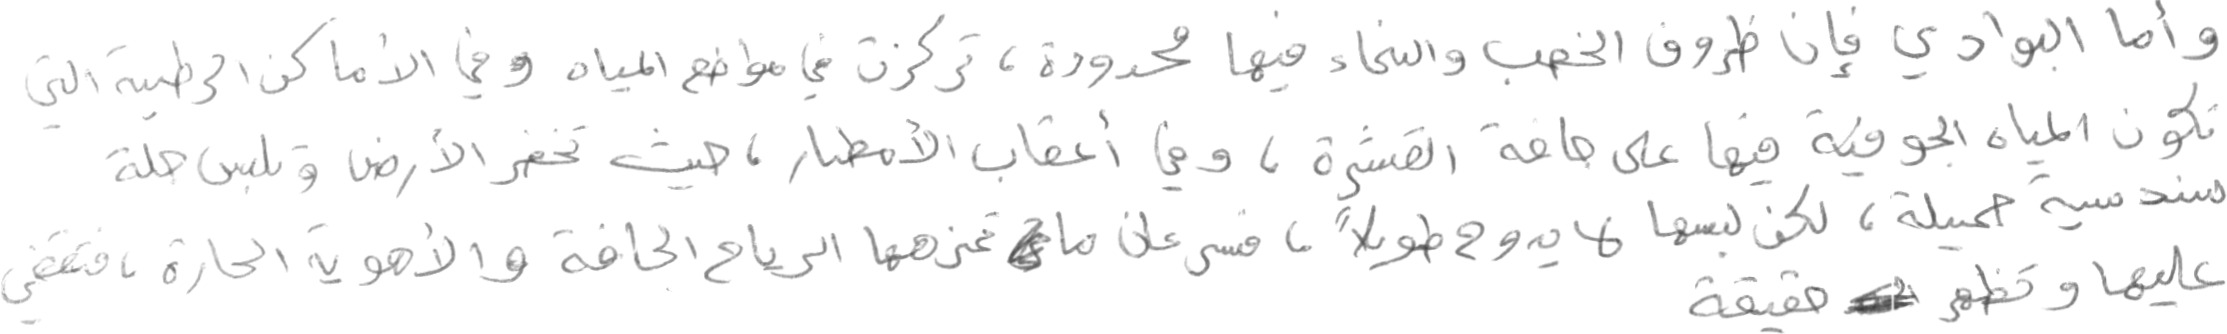 وأما البوادي فإن ظروف الخصب والنماء فيها محدودة، تركزت في مواضع المياه وفي الأماكن الرطبة التي
تكون المياه الجوفية فيها على حافة القشرة، وفي أعقاب الأمطار، حيث تخضر الأرض وتلبس حلة
سندسية جميلة، لكن لبسها لا يدوم طويلاً، فسرعان ما تمزهها الرياح الجافة والأهوية الحارة، فتقضي
عليها وتظهر حقيقة